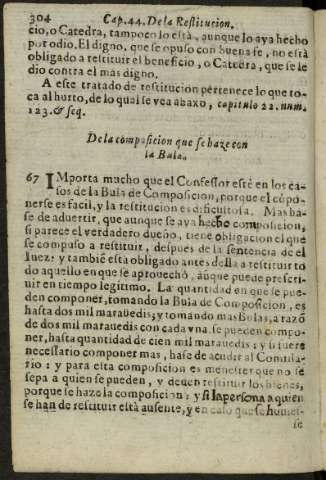 304 Cap. 44. De la Restitucion.
cio, o Catedra, tampoco lo està, aunque lo aya hecho
por odio. El digno, que se opuso con buena fe, no està
obligado a restituir el beneficio, o Catedra, que se le
dio contra el mas digno.
A este tratado de restitucion pertenece lo que to-
ca al hurto, de lo qual se vea abaxo, capitulo 22. num.
123. & seq.
De la composicion que se haze con
la Bula.
67 IMporta mucho que el Confessor esté en los ca-
sos de la Bula de Composicion, porque el cõpo-
nerse es facil, y la restitucion es dificultosa. Mas ha-
se de aduertir, que aunque se aya hecho composicion,
si parece el verdadero dueño, tiene obligacion el que
se compuso a restituir, despues de la sentencia del
Iuez: y tambiẽ esta obligado antes della a restituir to
do aquello en que se aprouechò, aũque puede prescri-
uir en tiempo legitimo. La quantidad en que se pue-
den componer, tomando la Bula de Composicion, es
hasta dos mil marauedis; y tomando mas Bulas, a razõ
de dos mil marauedis con cada vna. se pueden compo-
ner, hasta quantidad de cien mil marauedis; y si fuere
necessario componer mas, hase de acudir al Comissa-
rio: y para esta composicion es menester que no se
sepa a quien se pueden, y deuen restituir los bienes,
porque se haze la composicion: y si la persona a quien
se han de restituir està ausente, y en caso que se huuies-
se